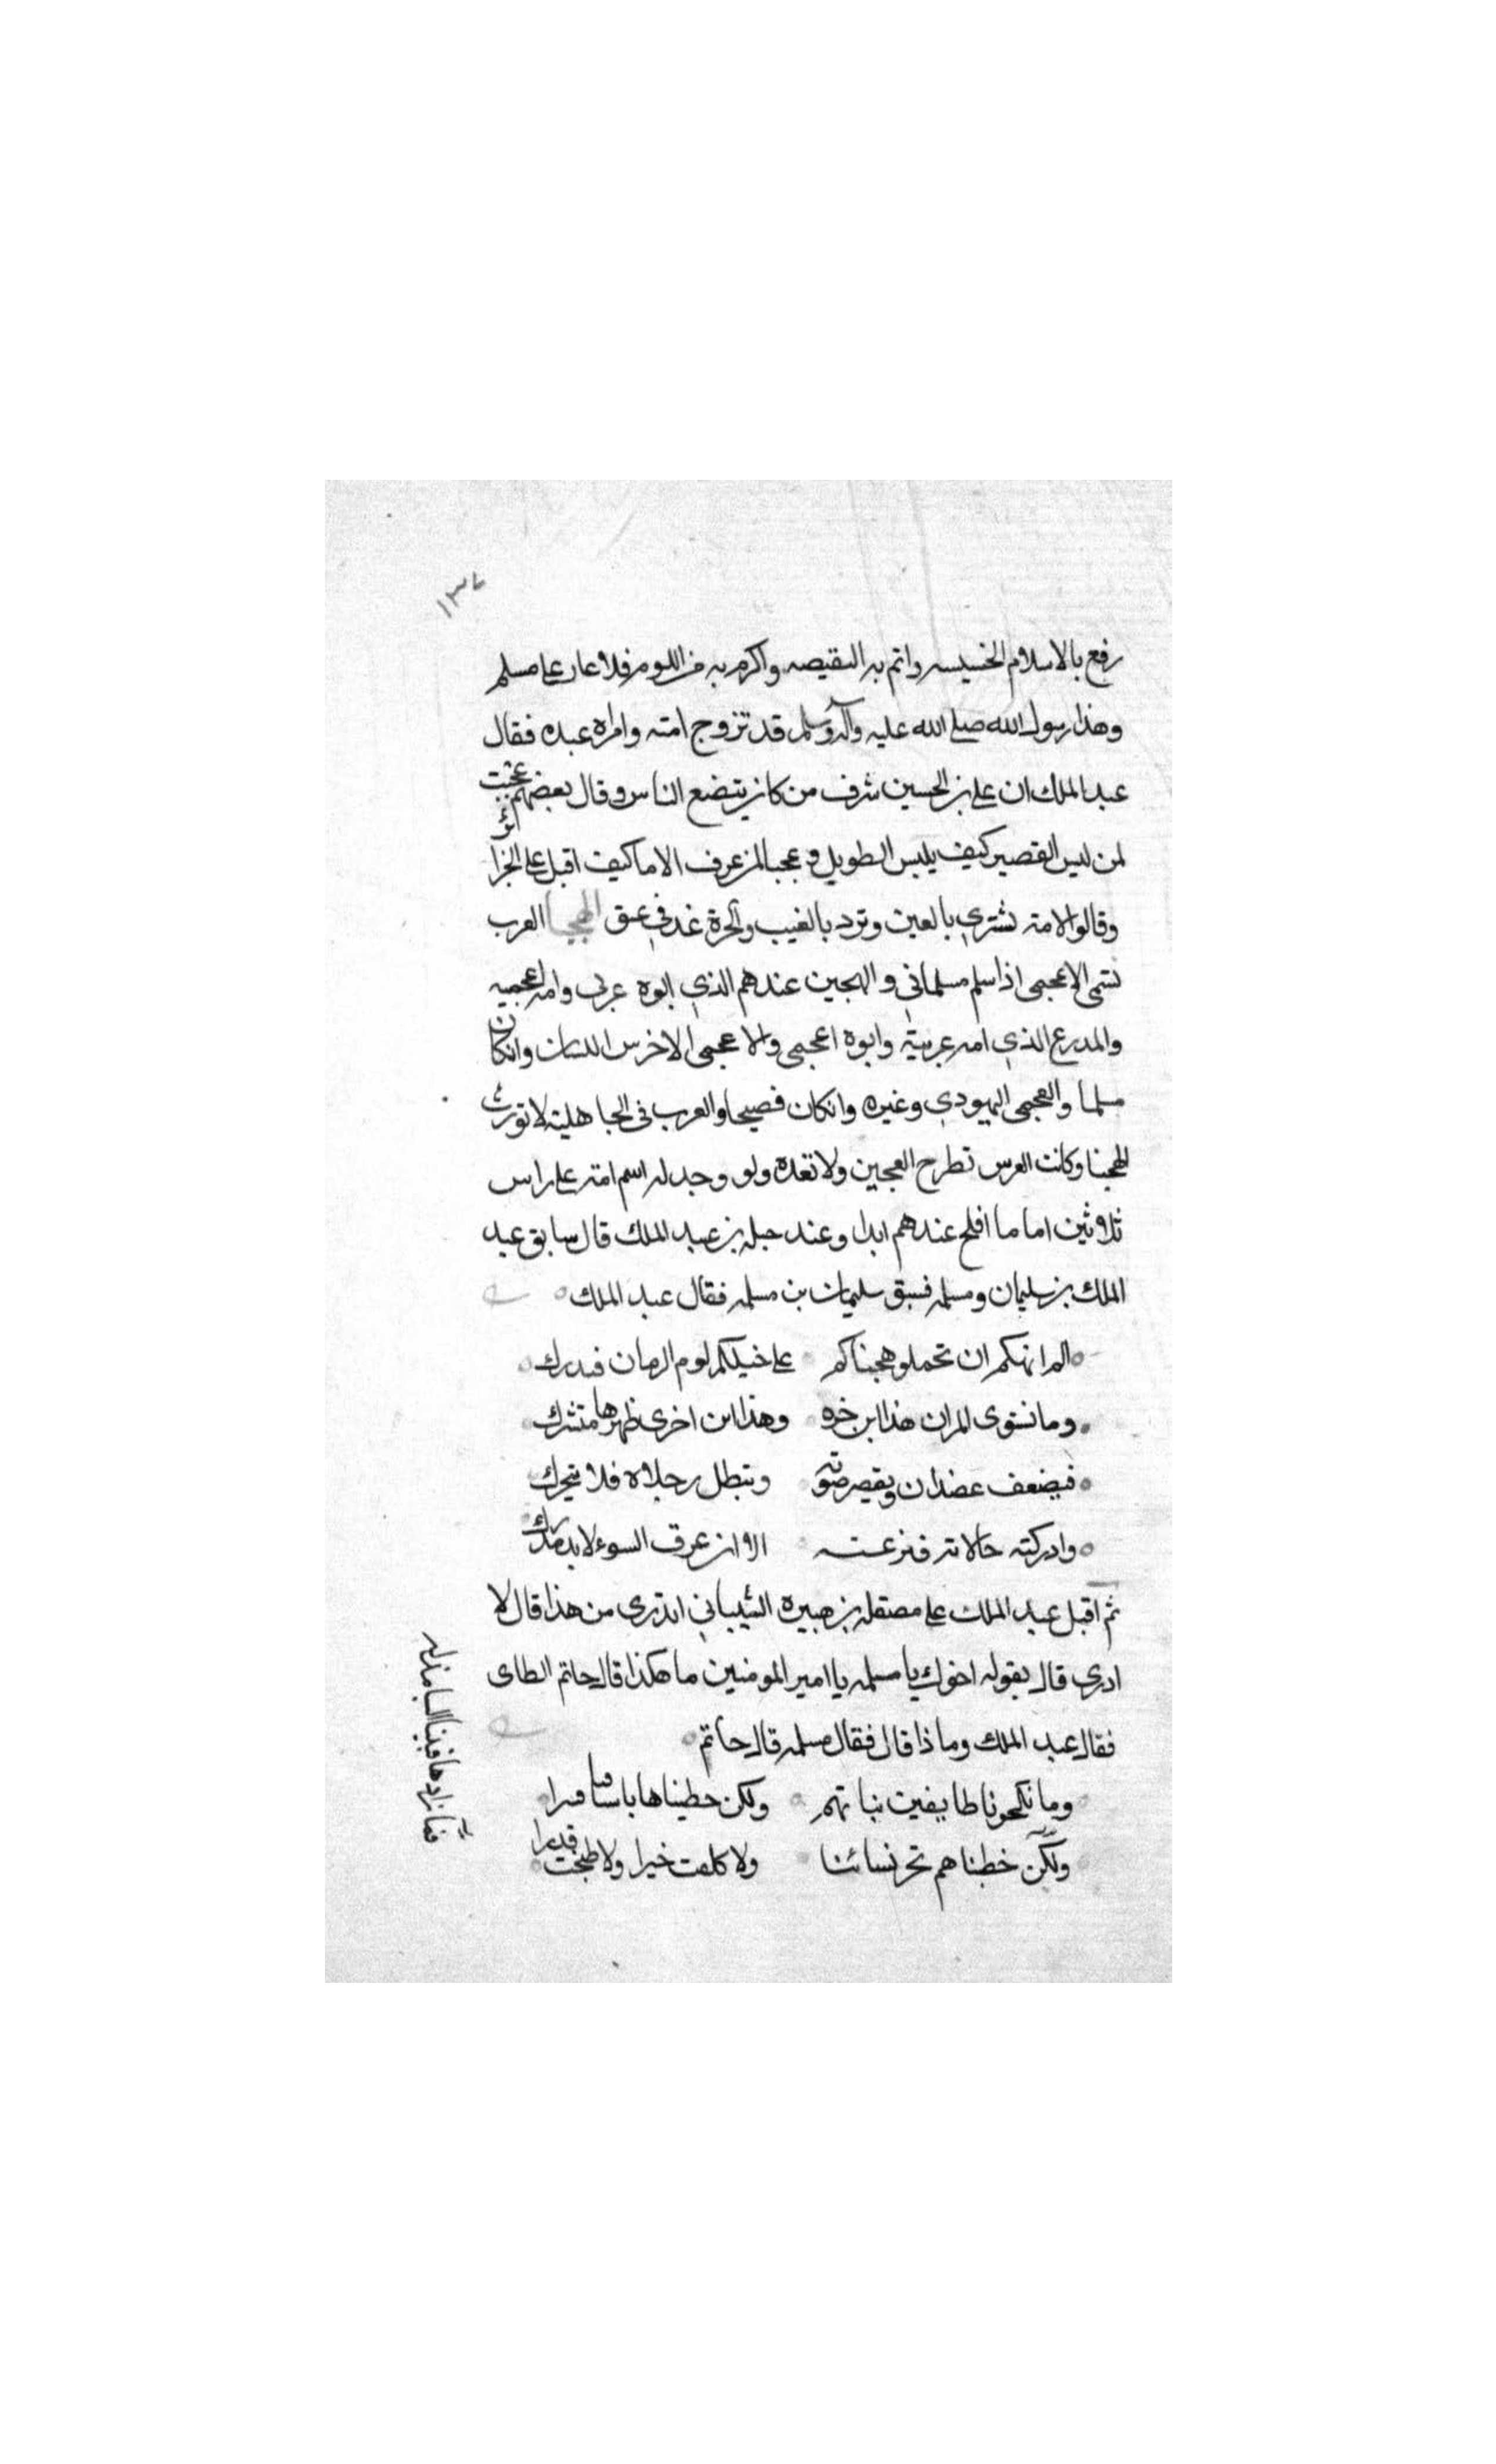 ١٣٧
رفع بالاسلام الخسيسه واتم به النقيصه واكرم به من اللوم فلا عار على مسلم
وهذا رسول الله صلى الله عليه وآله وسلم قد تزوج امته وامراه عبده فقال
عبد الملك ان على بن الحسين شرف من كان يتضع الناس وقال بعضهم عجبت
لمن لبس القصير كيف يلبس الطويل وعجبا لمن عرف الاما كيف اقبل على الحرائر
وقالوا الامة تشتري بالعين وترد بالعيب والحرة غل في عنق الهجنا العرب
تسمى الاعجمى اذا سلم مسلماني والهجين عندهم الذي ابوه عربى وامه اعجميه
والمدرع الذي امه عربية وابوه اعجمى والاعجمى الاخرس اللسان وان كان
مسلما والعجمى اليهودي وغيره وان كان فصيحا والعرب فى الجاهلية لا تورث
الهجنا وكانت الفرس تطرح الهجين ولا تعده ولو وجد له اسم امة على راس
ثلاثين اما ما افلح عندهم ابدا وعند جبله بن عبد الملك قال سابق عبد
الملك بن سليمان ومسلمه فسبق سليمان بن مسلمه فقال عبد الملك
الم انهكم ان تحملو هجناكم على خيلكم لوم الرهان فيدرك
وما تستوى المران هذا ابن حره وهذا ابن اخرى ظهرها متشرك
فيضعف عضدان ويقصر صوته وتبطل رجلاه فلا يتحرك
وادركته حالاته فنزعنه الا ان عرق السوء لابد مدرك
ثم اقبل عبد الملك على مصقله بن هبيره الشيباني اتدرى من هذا قال لا
ادري قال يقوله اخوك يا مسلمه يا امير المومنين ما هكذا قال حاتم الطاى
فقال عبد الملك وما ذا قال فقال مسلمه قال حاتم
وما نكحونا طايفين بناتهم ولكن خطبناها باسيافنا قسرا
ولكن خطبناهم بحر نسائنا ولا كلفت خبزا ولا طبخت قدرا
فما زادها فينا السبا مذله